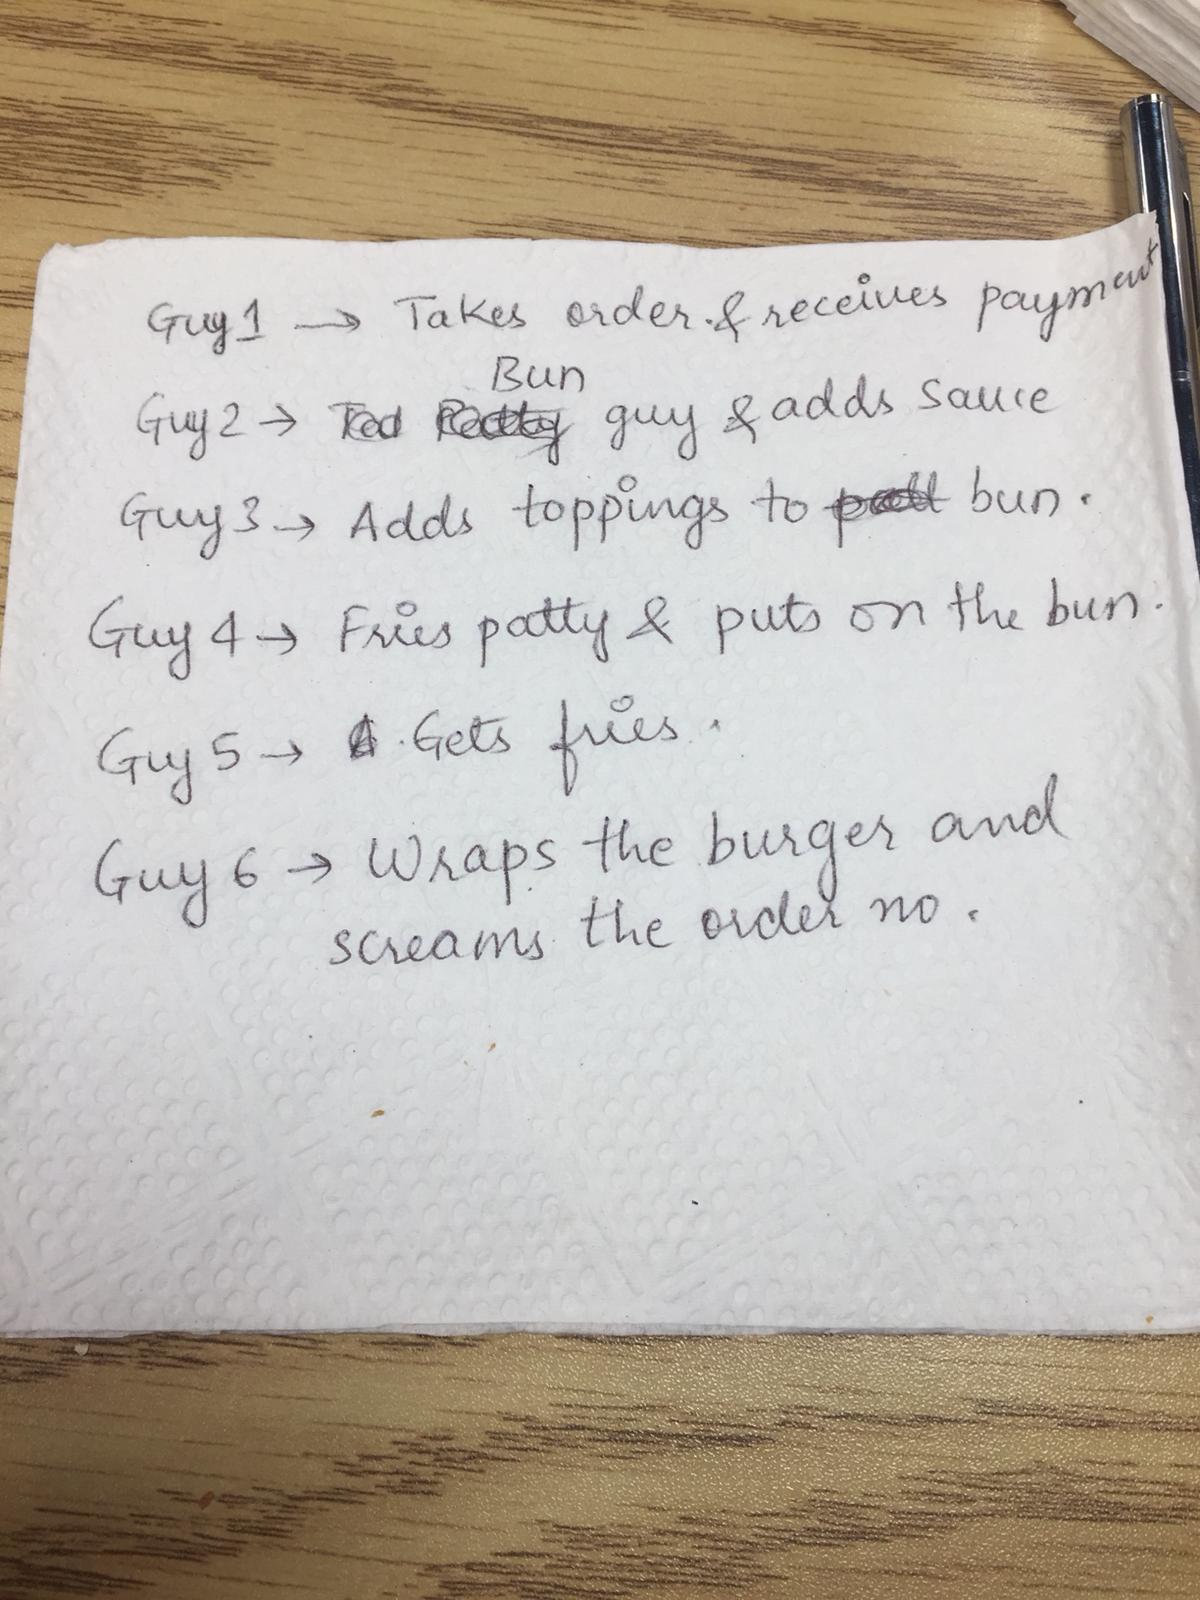 Guy 1 → Takes order & receives payment
Bun
Guy 2 → guy & adds sauce
Guy 3 → Adds toppings to bun.
Guy 4 → Fries patty & puts on the bun.
Guy 5 → Gets fries.
Guy 6 → Wraps the burger and
screams the order no.